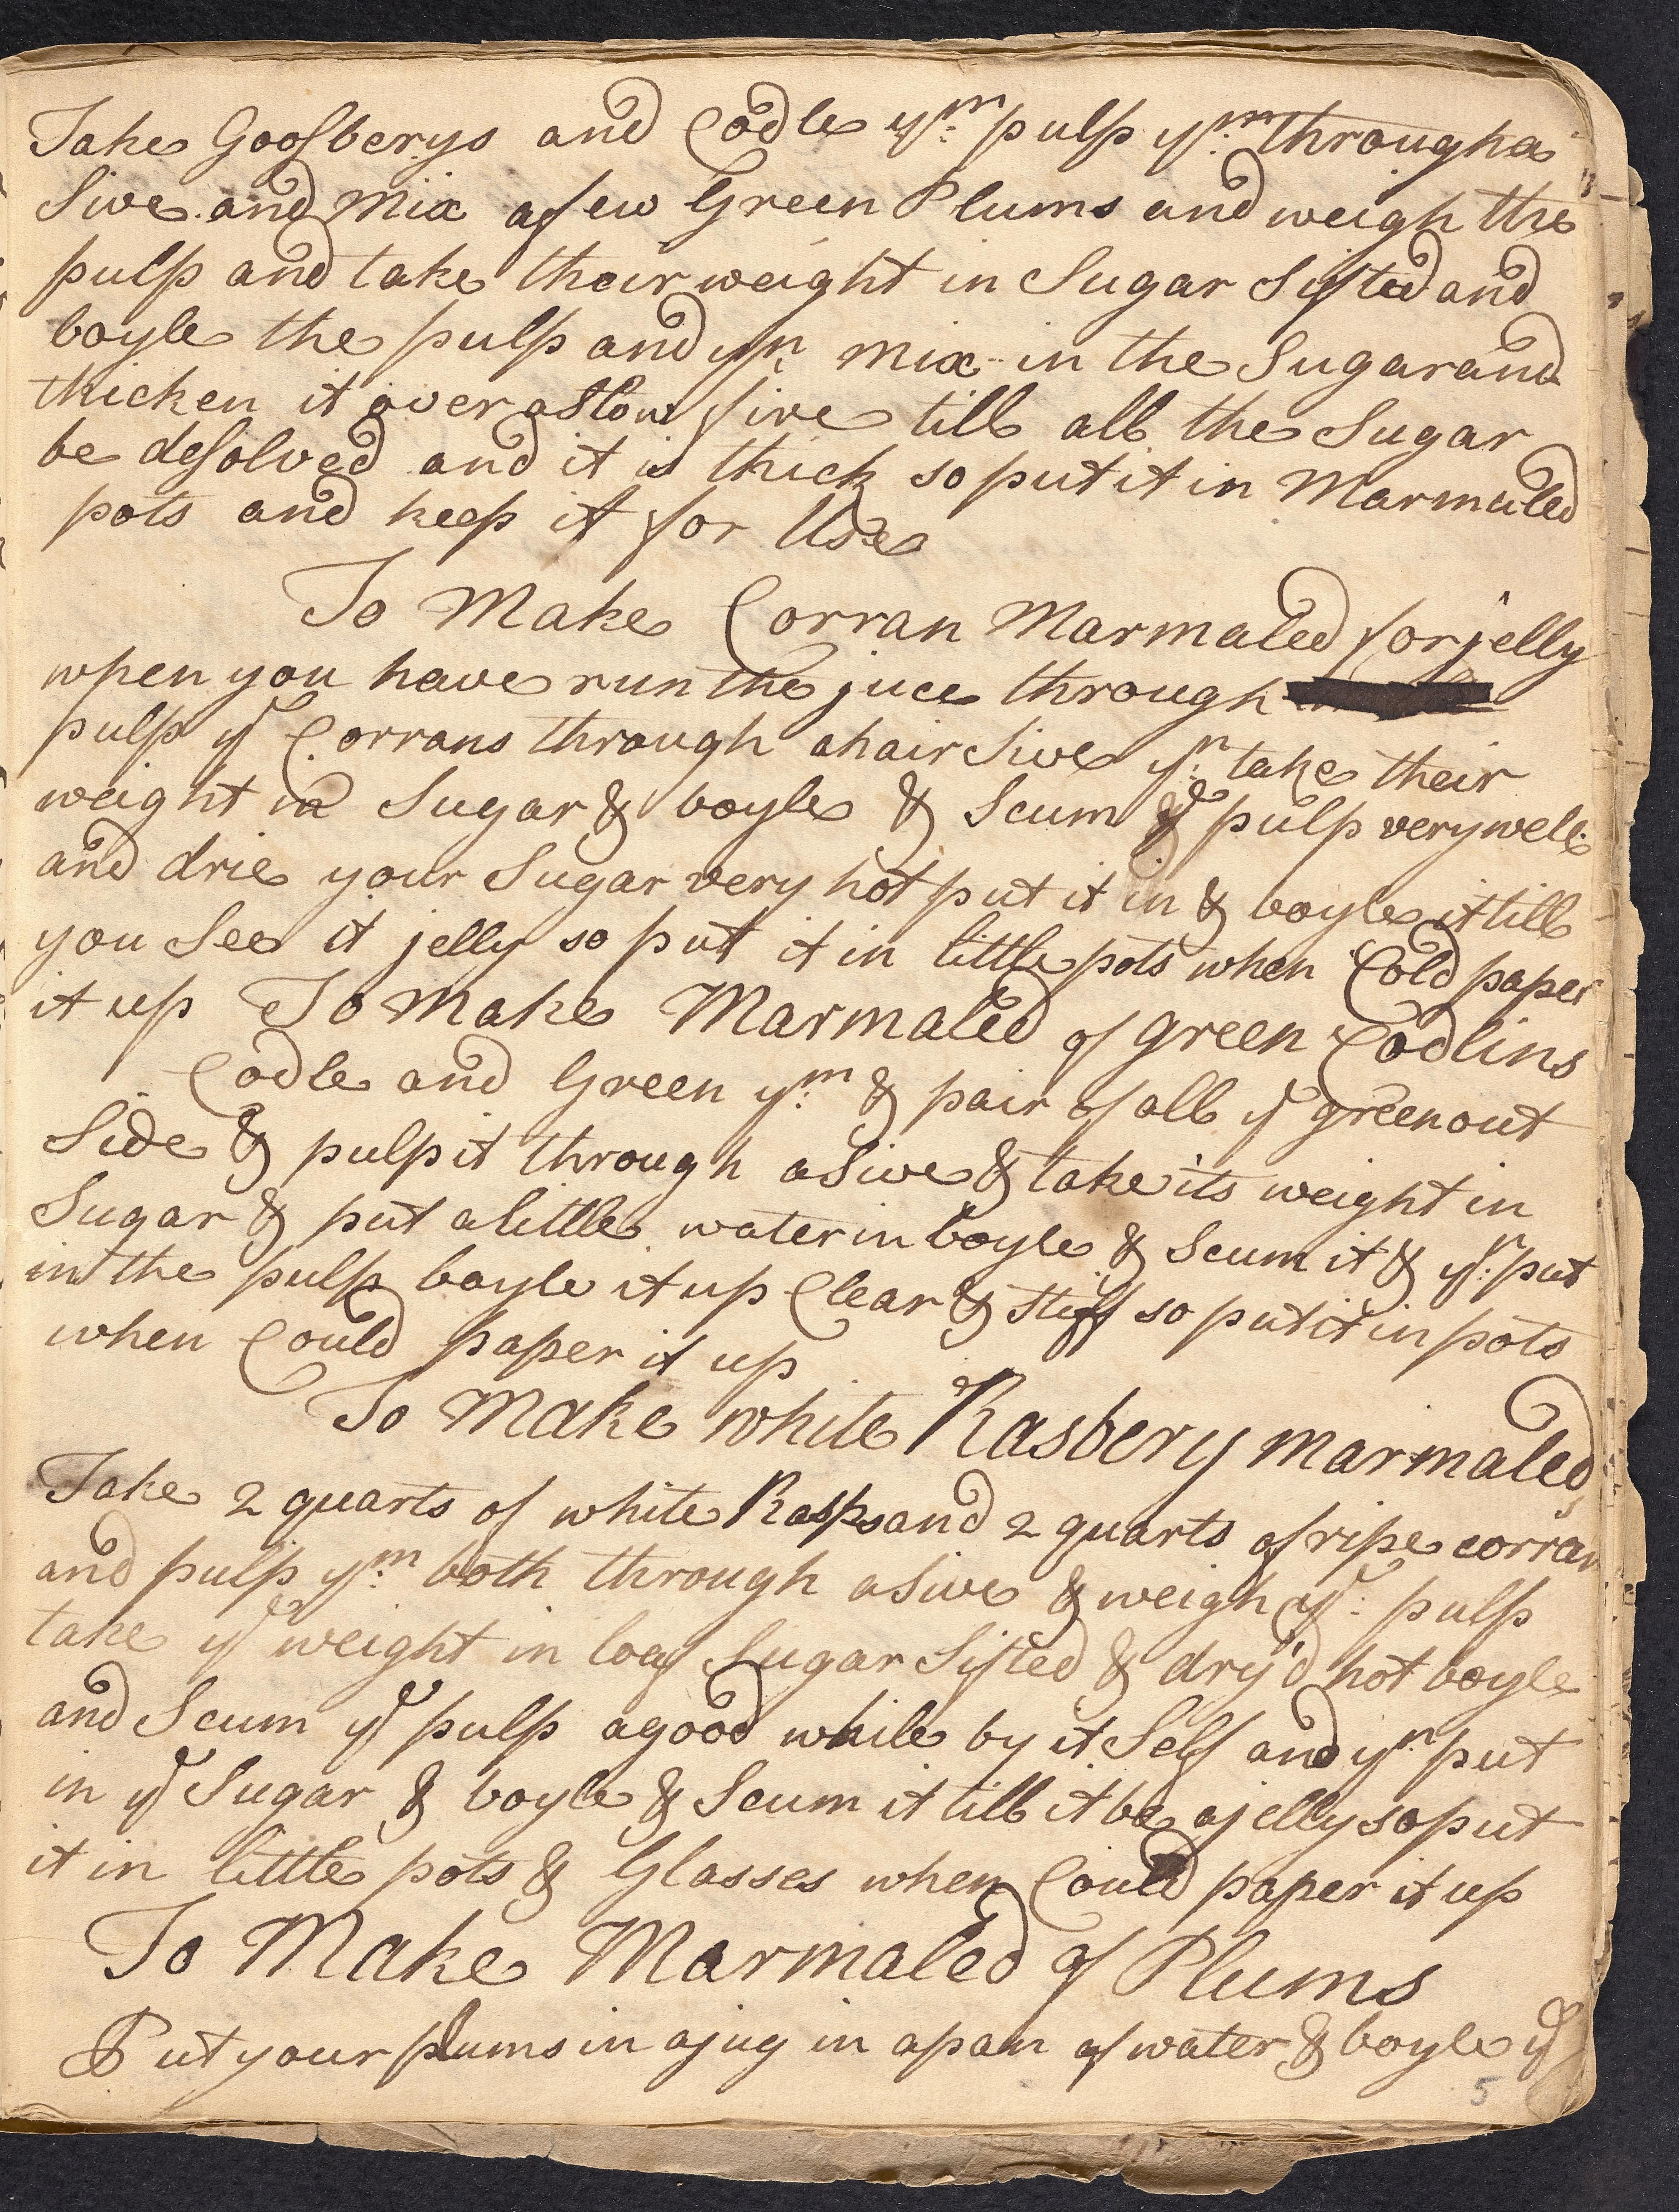 Take Goosberys and Codle ym: pulp ym: through a
Sive and Mix a few Green Plums and weigh the
pulp and take their weight in Sugar Sifted and
boyle the pulp and yn mix in the Sugar and
thicken it over a Slow fire till all the Sugar
be desolved and it is thick so put it in Marmaled
pots and keep it for Use
To Make Corran Marmaled for jelly
when you have run the juce through
pulp ye Corrans through a hair Sive yn: take their
weight in Sugar & boyle & Scum ye pulp very well
and drie your Sugar very hot put it in & boyle it till
you See it jelly so put it in little pots when Cold paper
it up To Make Marmaled of green Codlins
Codle and Green ym: & pair of all ye green out
Side & pulp it through a Sive & take its weight in
Sugar & put a little water in boyle & Scum it & yn: put
in the pulp boyle it up Clear & Stiff so put it in pots
when Could paper it up
To Make white Rasbery marmaled
Take 2 quarts of white Rasps and 2 quarts of ripe corran
and pulp ym: both through a Sive & weigh ye: pulp
take ye weight in loaf Sugar Sifted & dry'd hot boyle
and Scum ye pulp a good while by it Self and yn: put
in ye Sugar & boyle & Scum it till it be a jelly so put
it in little pots & Glasses when Could paper it up
To Make Marmaled of Plums
Put your plums in a jug in a pan of water & boyle ye
5